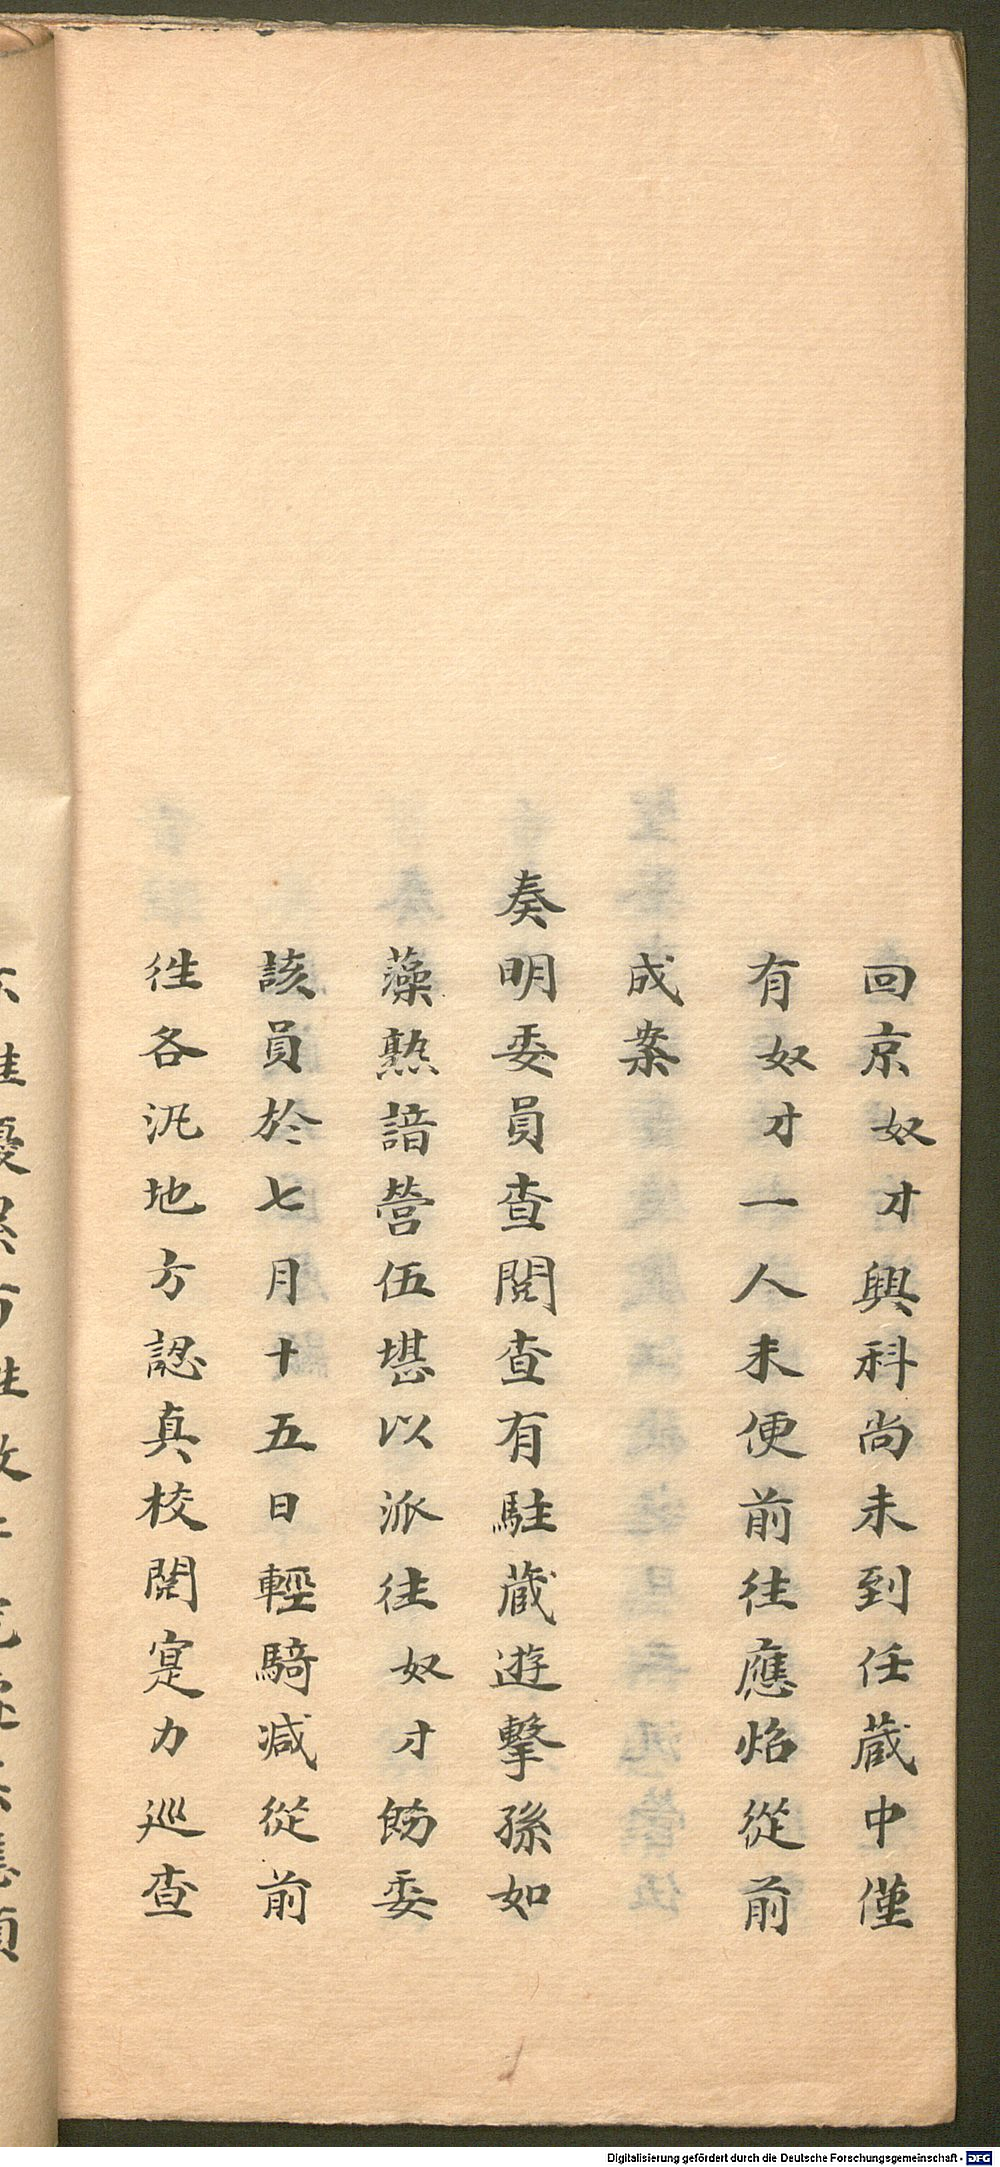 回京奴才興科尚未到任蔵中僅
有奴才一人未便前往應炤從前
成案
奏明委員查閱查有駐蔵遊擊孫如
藻熟諳營伍堪以派往奴才飭委
該員於七月十五日輕騎减從前
徃各汛地方認真校閱寔力巡查
Digitalisierung gefördert durch die Deutsche Forschungsgemeinschaft - DFG